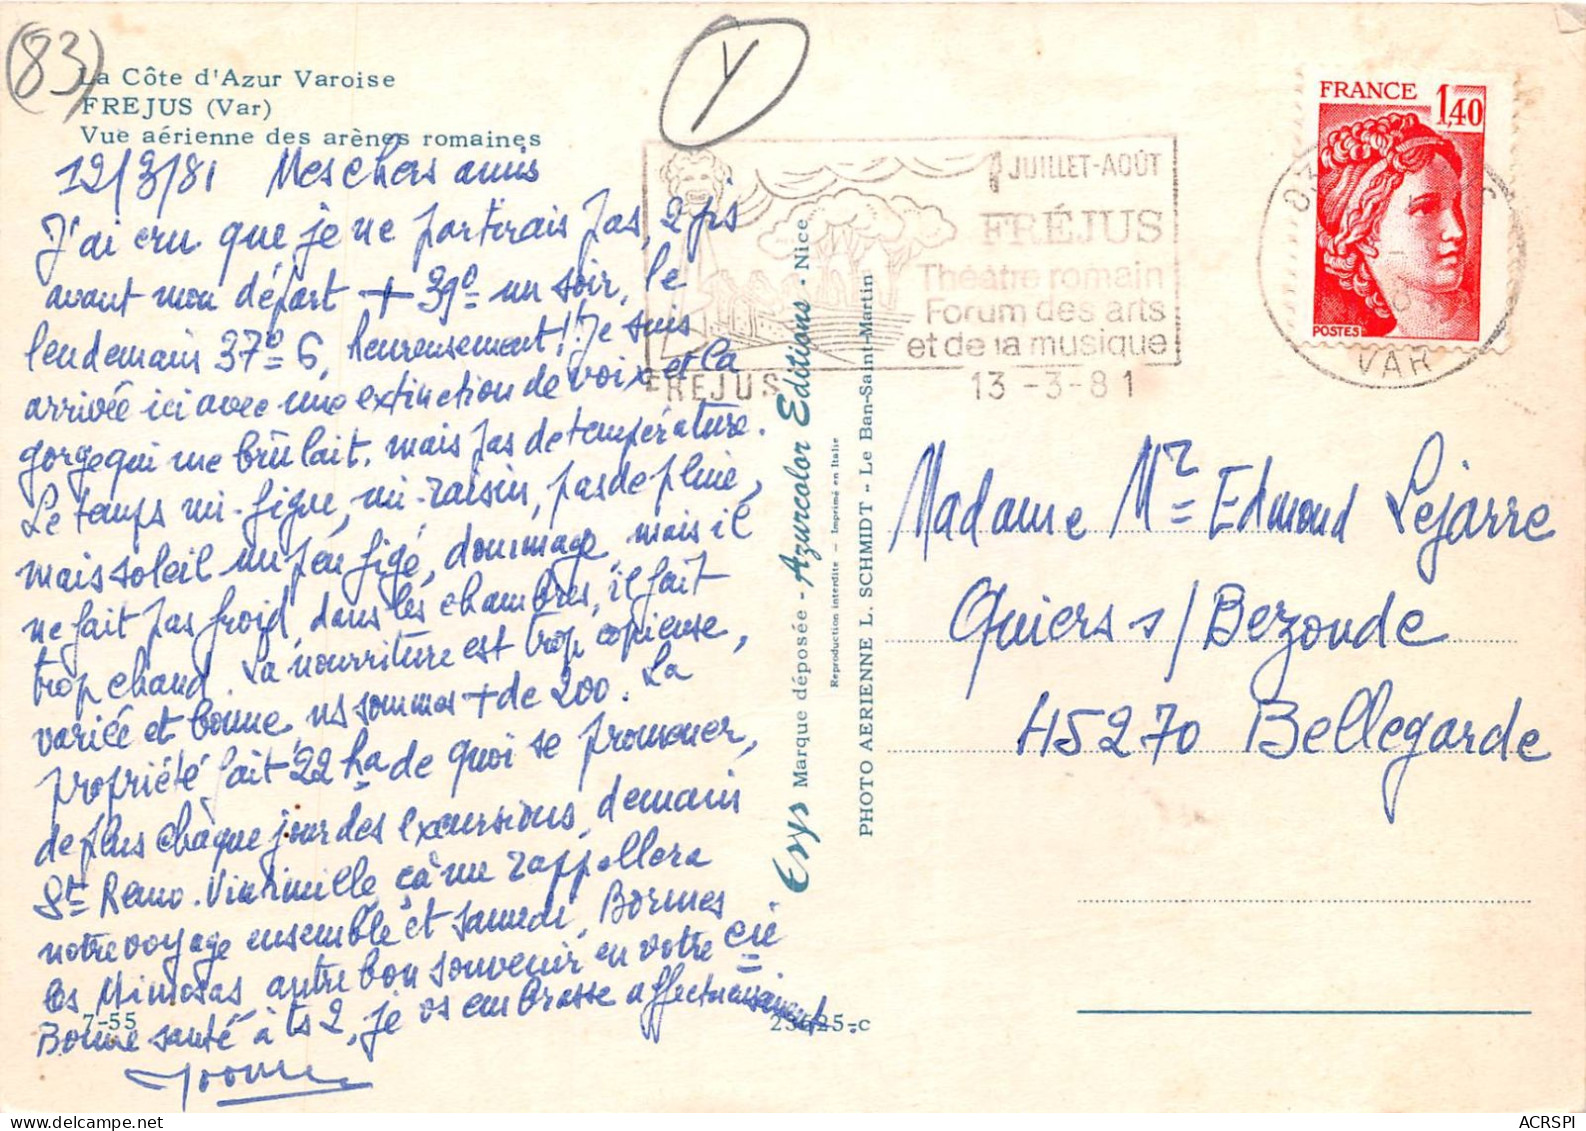 (83)
La Côte d'Azur Varoise
FREJUS (Var)
Vue aérienne des arènes romaines
12/3/81 Mes chers amis
J'ai cru que je ne partirais pas, 2 jrs
avant mon départ + 39° un soir, le
lendemain 37° 6, heureusement! Je suis
arrivée ici avec une extinction de voix et la
gorge qui me brûlait, mais pas de température.
Le temps mi-figue, mi-raisin, pas de pluie,
mais soleil un peu figé, dommage, mais il
ne fait pas froid, dans les chambres, il fait
trop chaud. La nourriture est trop copieuse,
variée et bonne, ns sommes + de 200. La
propriété fait 22 ha de quoi se promener,
de plus chaque jour des excursions, demain
St Remo. Vintimille, çà me rappellera
notre voyage ensemble et samedi, Bormes
les Mimosas, autre bon souvenir en votre Cie
Bonne santé à ts 2, je vs embrasse affectueusement.
Yvonne
7-55
23625-c
Y
JUILLET-AOÛT
FRÉJUS
Théâtre romain
Forum des arts
et de la musique
FREJUS
13-3-81
Esys Marque déposée - Azurcolor Editions - Nice
Reproduction interdite - Imprimé en Italie
PHOTO AERIENNE L. SCHMIDT - Le Ban-Saint-Martin
FRANCE 1,40
POSTES
83
VAR
Madame Mr Edmond Lejarre
Quiers s/Bezonde
45270 Bellegarde
ACRSPI